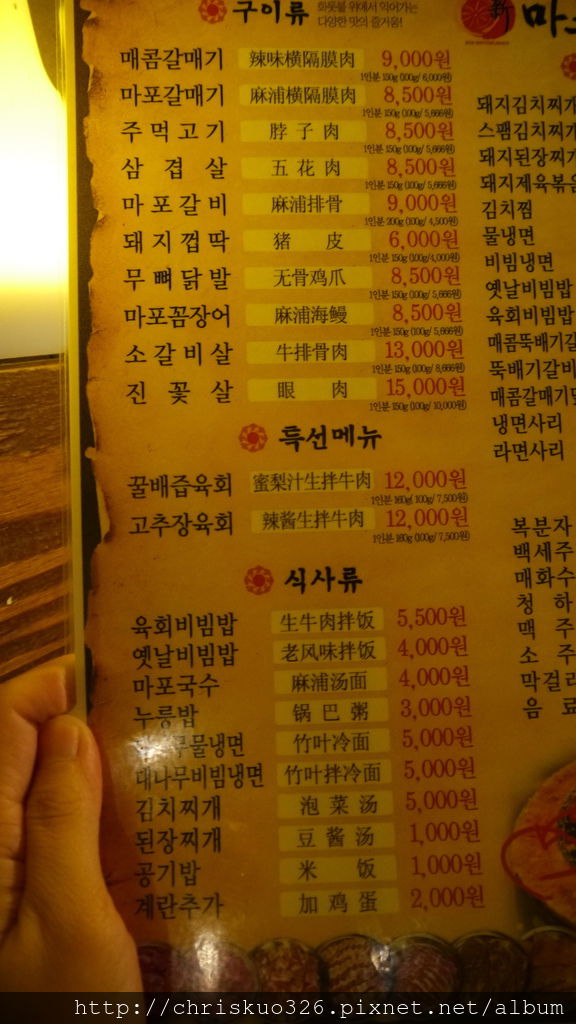 구이류 화돗불 위에서 익어가는
다양한 맛의 즐거움!
매콤갈매기 辣味横隔膜肉 9,000원
1인분 150g (100g/ 6,000원)
마포갈매기 麻浦横隔膜肉 8,500원
1인분 150g (100g/ 5,666원)
주먹고기 脖子肉 8,500원
1인분 150g (100g/ 5,666원)
삼겹살 五花肉 8,500원
1인분 150g (100g/ 5,666원)
마포갈비 麻浦排骨 9,000원
1인분 200g (100g/ 4,500원)
돼지껍딱 猪皮 6,000원
1인분 150g (100g/4,000원)
무뼈닭발 无骨鸡爪 8,500원
1인분 150g (100g/ 5,666원)
마포꼼장어 麻浦海鳗 8,500원
1인분 150g (100g/ 5,666원)
소갈비살 牛排骨肉 13,000원
1인분 150g (100g/ 8,666원)
진꽃살 眼肉 15,000원
1인분 150g (100g/ 10,000원)
특선메뉴
꿀배즙육회 蜜梨汁生拌牛肉 12,000원
1인분 160g( 100g/ 7,500원)
고추장육회 辣酱生拌牛肉 12,000원
1인분 160g (100g/ 7,500원)
식사류
육회비빔밥 生牛肉拌饭 5,500원
옛날비빔밥 老风味拌饭 4,000원
마포국수 麻浦汤面 4,000원
누룽밥 锅巴粥 3,000원
물냉면 竹叶冷面 5,000원
대나무비빔냉면 竹叶拌冷面 5,000원
김치찌개 泡菜汤 5,000원
된장찌개 豆酱汤 1,000원
공기밥 米饭 1,000원
계란추가 加鸡蛋 2,000원
新 마
돼지김치찌개
스팸김치찌개
돼지된장찌개
돼지제육볶음
김치찜
물냉면
비빔냉면
옛날비빔밥
육회비빔밥
매콤뚝배기갈
뚝배기갈비
매콤갈매기
냉면사리
라면사리
복분자
백세주
매화수
청하
맥주
소주
막걸리
음료
http://chriskuo326.pixnet.net/album